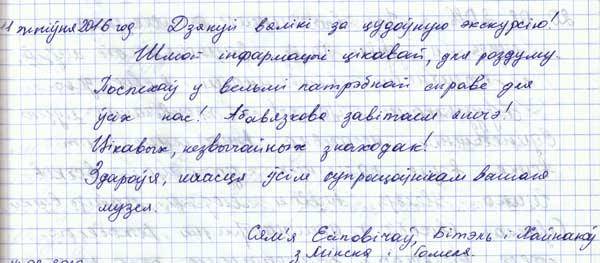 11 жніўня 2016 год Дзякуй вялікі за цудоўную экскурсію!
Шмат інфармацыі цікавай, для роздуму.
Поспехаў у вельмі патрэбнай справе для
ўсіх нас! Абавязкова завітаем яшчэ!
Цікавых, незвычайных знаходак!
Здароўя, шчасця ўсім супрацоўнікам вашага
музея.
Сям'я Есіповічаў, Бітэль і Хайнакоў
з Мінска і Гомеля.